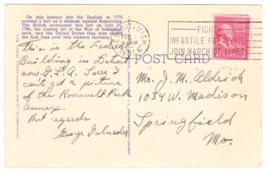 On this historic site the English in 1778
erected a fort as a defense against Americans.
The British evacuated this fort on July 11,
1796, the closing act of the War of Independ-
ence, and the United States flag was
the first time over this western territory.
POST CARD
INFANTILE PARALYSIS
JOIN MARCH OF DIMES
This is the Federal
Building in Detroit
now G.S.A. Sorry I
can't get a picture
of the Roosevelt Park
Annex.
Best regards
George
Mr. J. M. Aldrich
1034 W. Madison
Springfield
Mo.